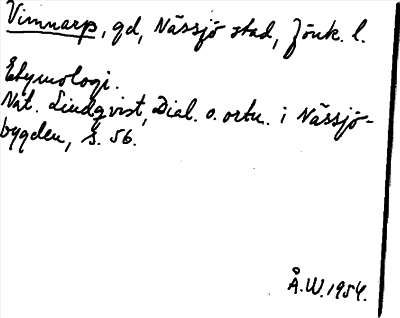 Vimnarp, gd, Nässjö stad, Jönk. l.
Etymologi.
Nat. Lindqvist, Dial. o. ortn. i Nässjö-
bygden, s. 56.
Å.W. 1954.